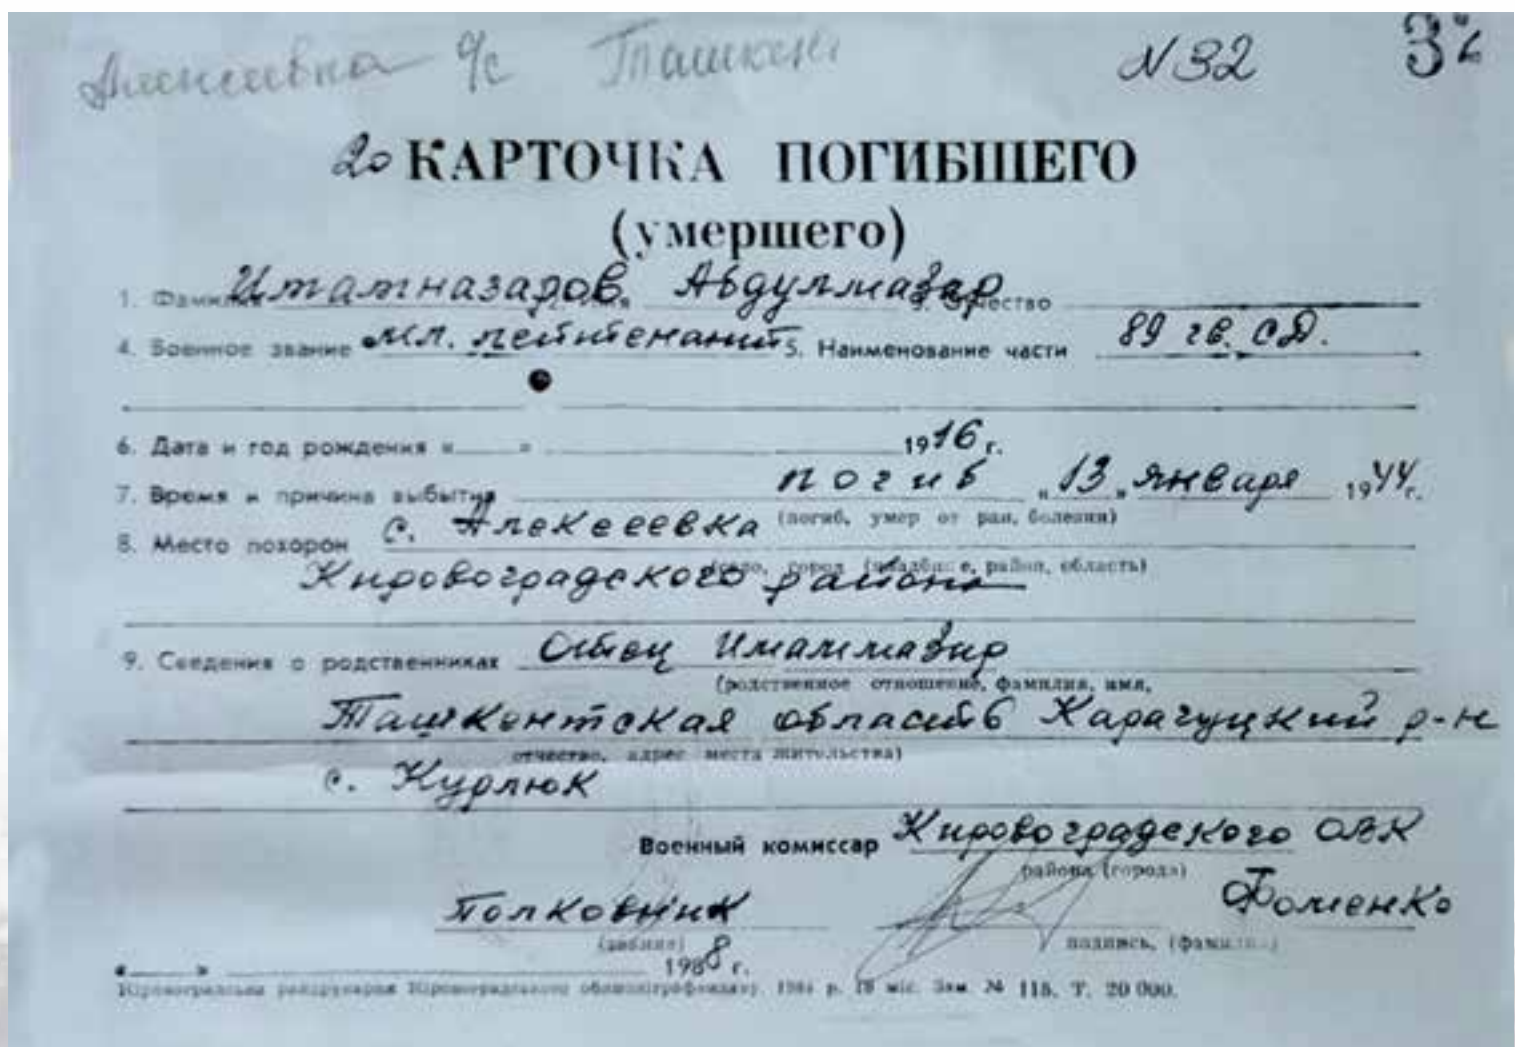 Алексеевка ч/с Ташкент N 32 3
20 КАРТОЧКА ПОГИБШЕГО
(умершего)
1. Фамилия Иматназаров Абдулмазар 3. Отчество
4. Военное звание мл. лейтенант 5. Наименование части 89 гв. СД.
6. Дата и год рождения « » 1916 г.
7. Время и причина выбытия погиб „13„ января 1944 г.
(погиб, умер от ран, болезни)
8. Место похорон с. Алексеевка
(село, город (кладбище, район, область)
Кировоградского района
9. Сведения о родственниках Отец Имаммазир
(родственное отношение, фамилия, имя,
Ташкентская область Карагуцкий р-н
отчество, адрес места жительства)
с. Кудлюк
Военный комиссар Кировоградского ОВК
района (города)
Полковник Фоменко
(звание) подпись, (фамилия)
« » 1988 г.
115. Т. 20 000.